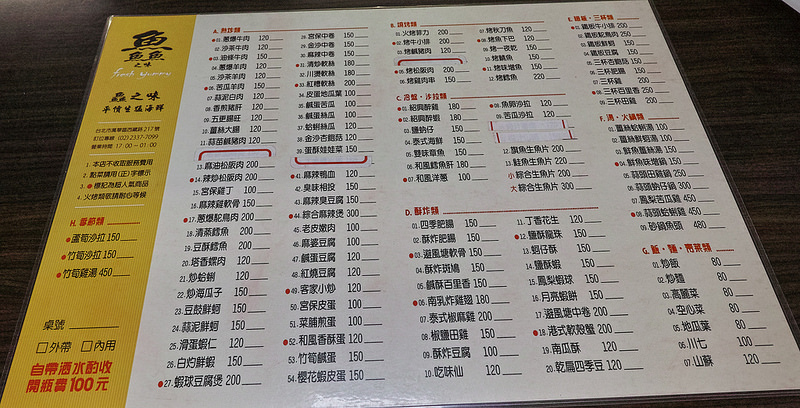 鱻
之味
fresh yummy
鱻之味
平價生猛海鮮
台北市萬華區西藏路217號
訂位專線 (02) 2337-7099
營業時間 17:00 — 01:00
1. 本店不收取服務費用
2. 點菜請用(正)字標示
3. ●標記為超人氣商品
4. 火烤類敬請耐心等候
H. 季節類
●蘆筍沙拉 150
●竹筍沙拉 150
●竹筍雞湯 450
桌號
□外帶 □內用
自帶酒水酌收
開瓶費100元
A. 熱炒類
●01.蔥爆牛肉 120
02.沙茶牛肉 120
●03.油條牛肉 150
04.蔥爆羊肉 120
05.沙茶羊肉 120
●06.苦瓜羊肉 150
07.蒜泥白肉 120
08.香煎豬肝 120
09.五更腸旺 120
10.薑絲大腸 120
11.蒜苗鹹豬肉 120
13.麻油松阪肉 200
●14.辣炒松阪肉 200
15.宮保雞丁 100
16.麻辣雞軟骨 150
●17.蔥爆鴕鳥肉 200
18.清蒸鱈魚 200
19.豆酥鱈魚 200
20.塔香螺肉 120
21.炒蛤蜊 120
22.炒海瓜子 150
23.豆鼓鮮蚵 150
24.蒜泥鮮蚵 150
25.滑蛋蝦仁 120
26.白灼鮮蝦 150
●27.蝦球豆腐煲 200
28.宮保中卷 150
29.金沙中卷 150
30.麻辣中卷 150
●31.清炒軟絲 180
32.川燙軟絲 180
●33.紅糟軟絲 200
34.皮蛋地瓜葉 100
35.鹹蛋苦瓜 100
36.鹹蛋絲瓜 100
37.蛤蜊絲瓜 100
38.金沙杏鮑菇 120
39.蛋酥娃娃菜 150
41.麻辣鴨血 120
42.臭味相投 150
43.麻辣臭豆腐 150
●44.綜合麻辣煲 300
45.老皮嫩肉 100
46.麻婆豆腐 100
47.鹹蛋豆腐 100
48.紅燒豆腐 120
●49.客家小炒 120
50.宮保皮蛋 100
51.菜脯煎蛋 100
●52.和風香酥蛋 120
53.竹筍鹹蛋 150
54.櫻花蝦皮蛋 150
B. 燒烤類
01.火烤菲力 200
●02.烤牛小排 200
03.烤鹹豬肉 120
●05.烤松阪肉 200
06.烤雞肉串 150
07.烤秋刀魚 120
08.烤魚下巴 120
09.烤一夜乾 150
10.烤鯖魚 150
●11.烤味噌魚 150
12.烤鱈魚 220
C. 冷盤、沙拉類
●01.紹興醉雞 180
●02.紹興醉蝦 180
03.鹽蚋仔 150
04.泰式海鮮 150
05.雙味章魚 150
●06.和風鱈魚肝 180
●07.和風洋蔥 100
08.魚卵沙拉 120
09.苦瓜沙拉 120
12.旗魚生魚片 200
13.鮭魚生魚片 220
小 綜合生魚片 200
大 綜合生魚片 300
D. 酥炸類
01.四季肥腸 150
02.酥炸肥腸 150
●03.避風塘軟骨 150
04.酥炸斑鳩 150
05.鹹酥百里香 150
●06.南乳炸雞翅 180
07.泰式椒麻雞 200
08.椒鹽田雞 150
09.酥炸豆腐 100
10.吃味仙 150
11.丁香花生 120
●12.鹽酥龍珠 150
13.蚵仔酥 150
14.鹽酥蝦 150
15.鳳梨蝦球 150
16.月亮蝦餅 150
17.避風塘中卷 200
●18.港式軟殼蟹 200
19.南瓜酥 120
20.乾扁四季豆 120
E. 鐵板、三杯類
●01.鐵板牛小排 200
02.鐵板鴕鳥肉 250
03.鐵板鮮蚵 150
04.鐵板豆腐 150
05.三杯杏鮑菇 150
06.三杯肥腸 150
07.三杯雞 200
●08.三杯百里香 250
09.三杯田雞 200
F. 湯、火鍋類
01.薑絲蛤蜊湯 100
02.薑絲鮮蚵湯 100
03.鮮魚薑絲湯 150
●04.鮮魚味噌鍋 150
05.蒜頭田雞鍋 250
06.蒜頭蛤仔鍋 300
07.鳳梨苦瓜雞 450
●08.蒜頭蛤蜊雞 450
09.砂鍋魚頭 480
G. 飯、麵、青菜類
01.炒飯 80
02.炒麵 80
03.高麗菜 80
04.空心菜 80
05.地瓜葉 80
06.川七 100
07.山蘇 120